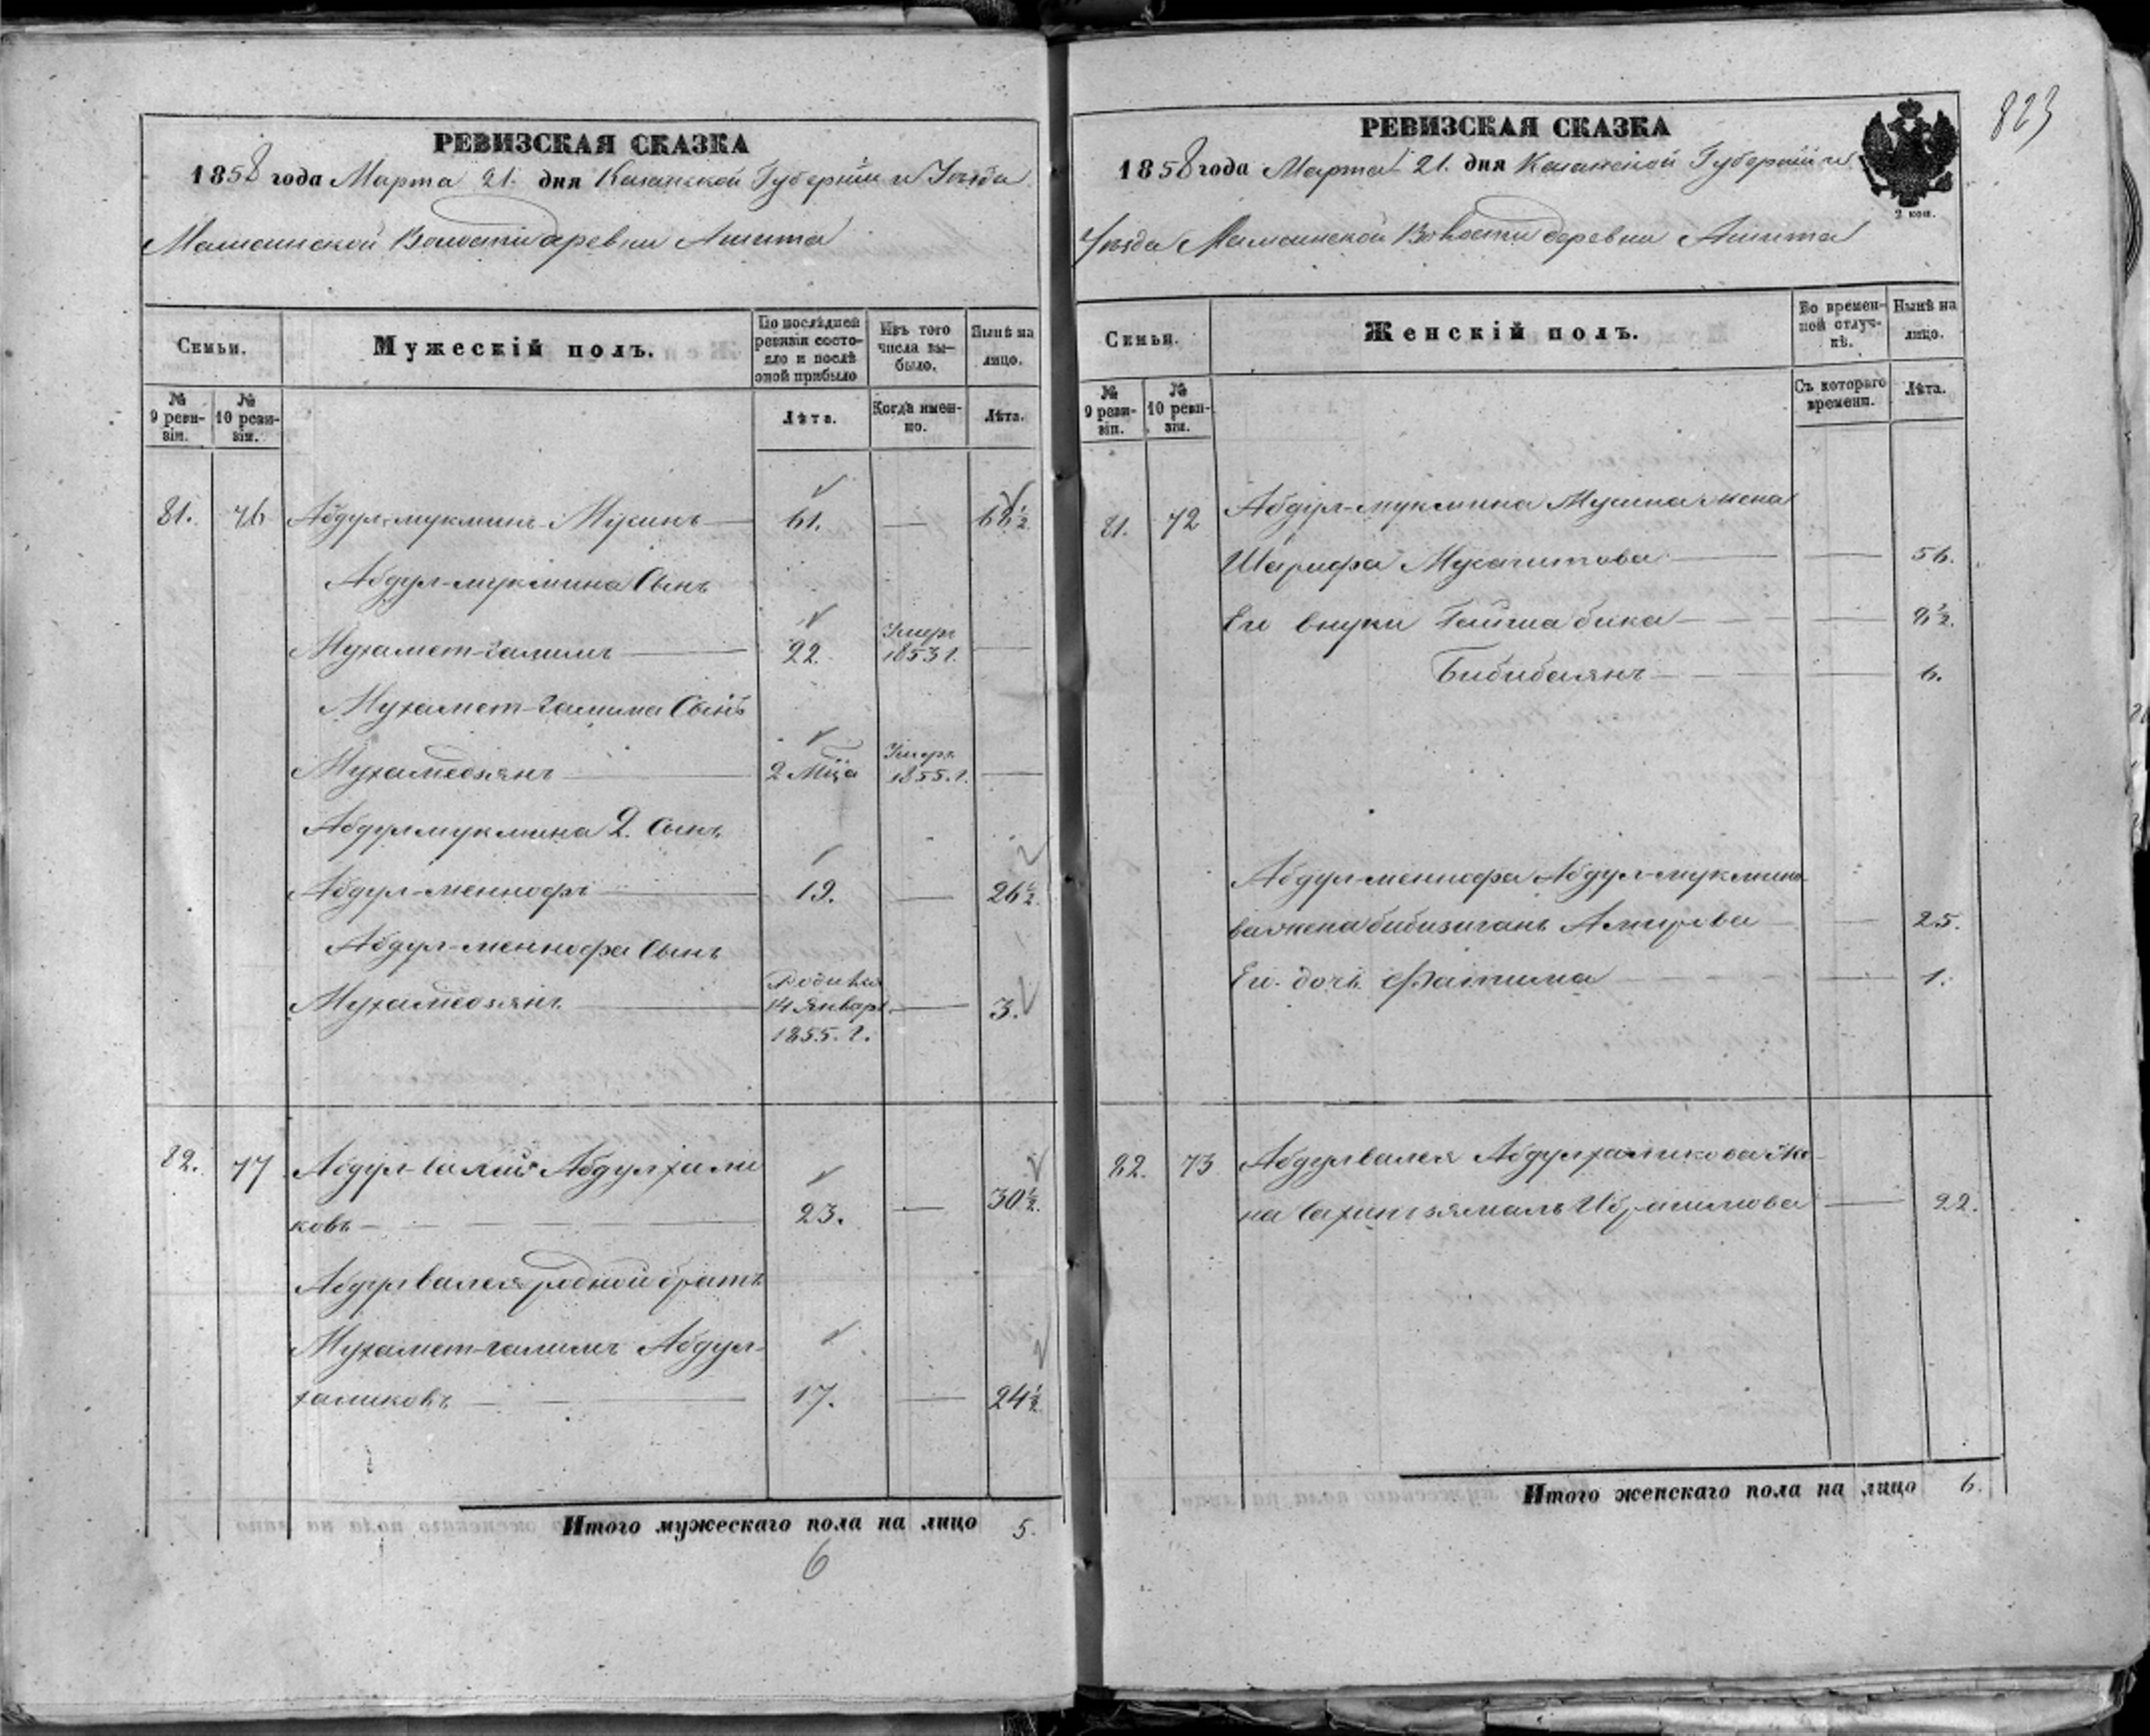 823
РЕВИЗСКАЯ СКАЗКА
1858 года Марта 21. дня Казанской Губернiи и Уѣзда
Мамсинской Волости деревни Ашита
Семьи.
Мужескiй полъ.
По послѣдней ревизiи состояло и послѣ оной прибыло
Изъ того числа выбыло.
Нынѣ на лицо.
№ 9 ревизiи.
№ 10 ревизiи.
Лѣта.
Когда именно.
Лѣта.
81. 76 Абдул-мукминъ Мусинъ 61. — 68½
Абдул-мукмина Сынъ
Мухамет-галимъ 22. Умеръ 1853 г. —
Мухамет-Галима Сынъ
Мухамедзянъ 2 Мца Умеръ 1855. г. —
Абдулмукмина 2. Сынъ
Абдул-меннофъ 19. — 26½.
Абдул-меннофа Сынъ
Мухамедзянъ Родился 14 Январ 1855. г. — 3.
82. 77 Абдул-валiй Абдулхали
ковъ — 23. — 30½.
Абдулвалея родной братъ
Мухамет-галимъ Абдул-
халиковъ — 17. — 24½
Итого мужескаго пола на лицо 5.
6
РЕВИЗСКАЯ СКАЗКА
1858 года Марта 21. дня Казанской Губернiи и
2 коп.
Уѣзда Мамсинской Волости деревни Ашита
Семьи.
Женскiй полъ.
Во временной отлучкѣ.
Нынѣ на лицо.
№ 9 ревизiи.
№ 10 ревизiи.
Съ котораго времени.
Лѣта.
81. 72 Абдул-мукмина Мусина жена
Шарифа Мусагитова — 56.
Ея внуки Гайша бика — 8½.
Бибибаянъ — 6.
Абдул-меннофа Абдул-мукмино-
ва жена бибизиганъ Амирова — 25.
Ея дочь Фатима — 1.
82. 73 Абдулвалея Абдулхаликова же-
на Сахипзямаль Ибрагимова — 22.
Итого женскаго пола на лицо 6.